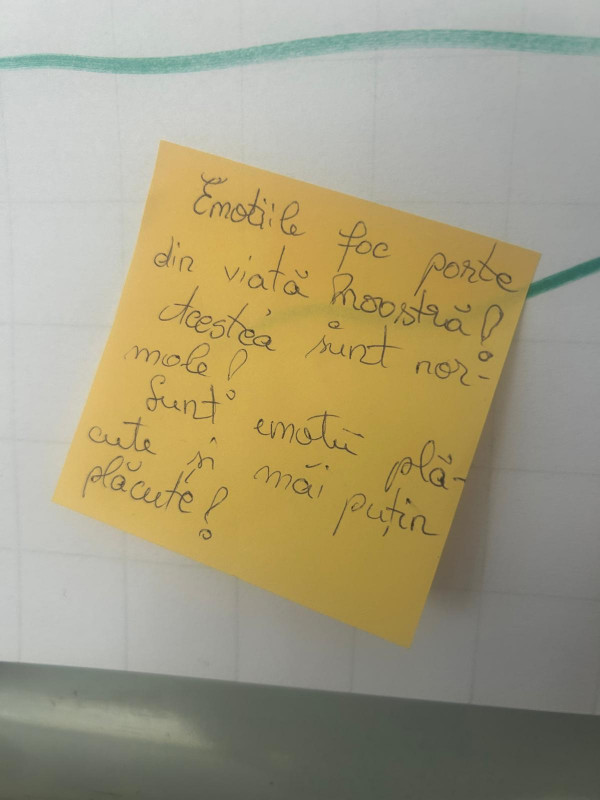 Emoțiile fac parte
din viață noastră!
Acestea sunt nor-
male!
Sunt emoții plă-
cute și măi puțin
plăcute!